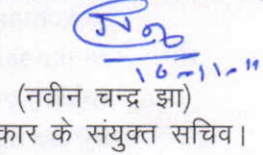 10-11-11
(नवीन चन्द्र झा)
कार के संयुक्त सचिव।